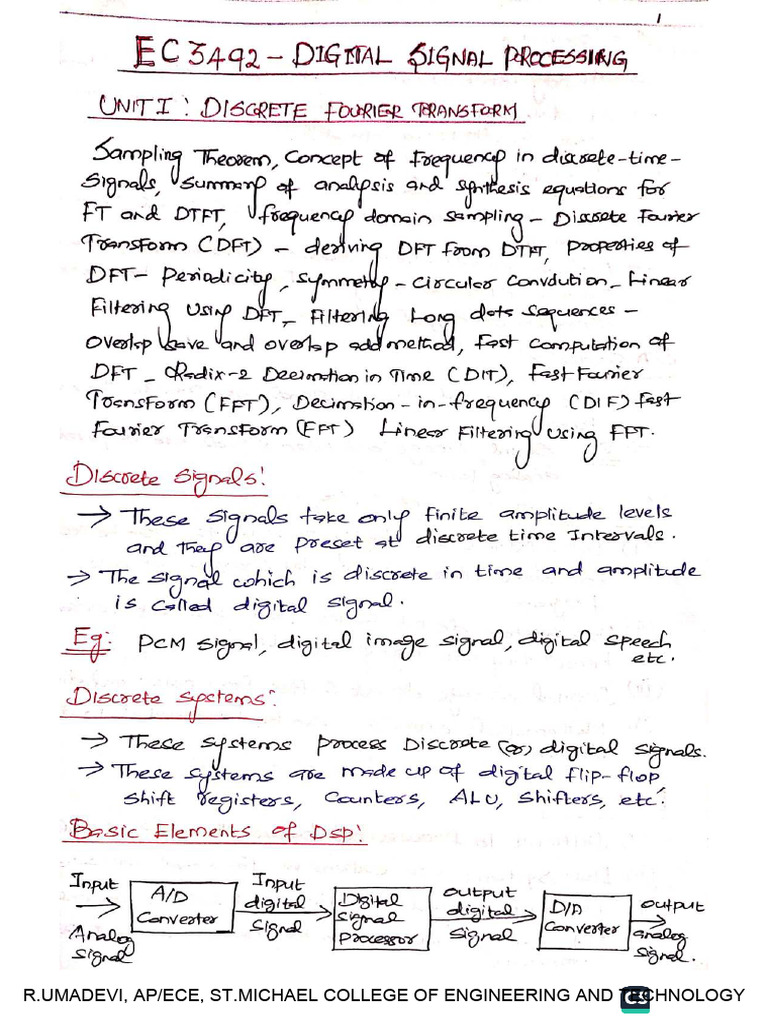 1
EC3492 - DIGITAL SIGNAL PROCESSING
UNIT I : DISCRETE FOURIER TRANSFORM
Sampling Theorem, Concept of frequency in discrete-time-
Signals, Summary of analysis and synthesis equations for
FT and DTFT, frequency domain sampling - Discrete Fourier
Transform (DFT) - deriving DFT from DTFT, properties of
DFT - Periodicity, symmetry - circular Convolution - Linear
Filtering Using DFT - Filtering Long data sequences -
overlap save and overlap add method, Fast computation of
DFT - Radix-2 Decimation in Time (DIT), Fast Fourier
Transform (FFT), Decimation-in-frequency (DIF) Fast
Fourier Transform (FFT) Linear Filtering Using FFT.
Discrete Signals:
→ These signals take only finite amplitude levels
and they are preset at discrete time Intervals.
→ The signal which is discrete in time and amplitude
is called digital signal.
Eg: PCM signal, digital image signal, digital speech
etc.
Discrete Systems:
→ These systems process Discrete (or) digital signals.
→ These systems are made up of digital flip-flop
shift registers, Counters, ALU, shifters, etc.
Basic Elements of Dsp:
Input
Analog
signal
A/D
Converter
Input
digital
signal
Digital
signal
processor
output
digital
signal
D/A
converter
output
analog
signal.
R.UMADEVI, AP/ECE, ST.MICHAEL COLLEGE OF ENGINEERING AND TECHNOLOGY
CS